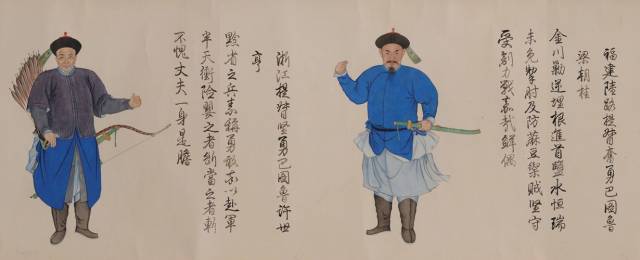 福建陸路提督奮勇巴圖魯
梁朝桂
金川勦逆埋根進首鹽水恒瑞
未免掣肘及防蔴豆禦賊堅守
受創力戰嘉哉鮮偶
浙江提督堅勇巴圖魯許世
亨
黔省之兵素稱勇敢以赴軍
半天衝險嬰之者斷當之者斬
不愧丈夫一身是膽